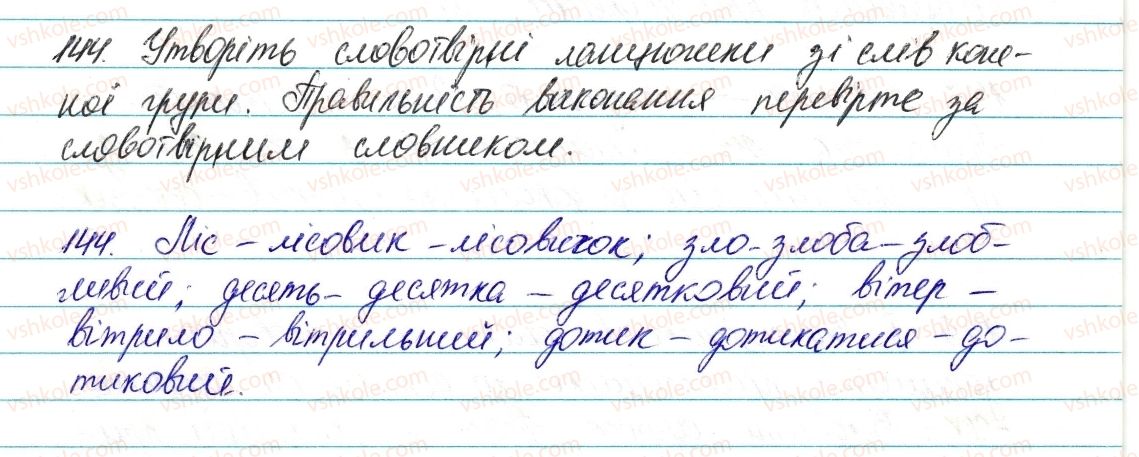 144. Утворіть словотвірні ланцюжки зі слів кож-
ної групи. Правильність виконання перевірте за
словотвірним словником.
144. Ліс – лісовик – лісовичок; зло – злоба – злоб-
ливий; десять – десятка – десятковий; вітер –
вітрило – вітрильний; дотик – дотикатися – до-
тиковий.